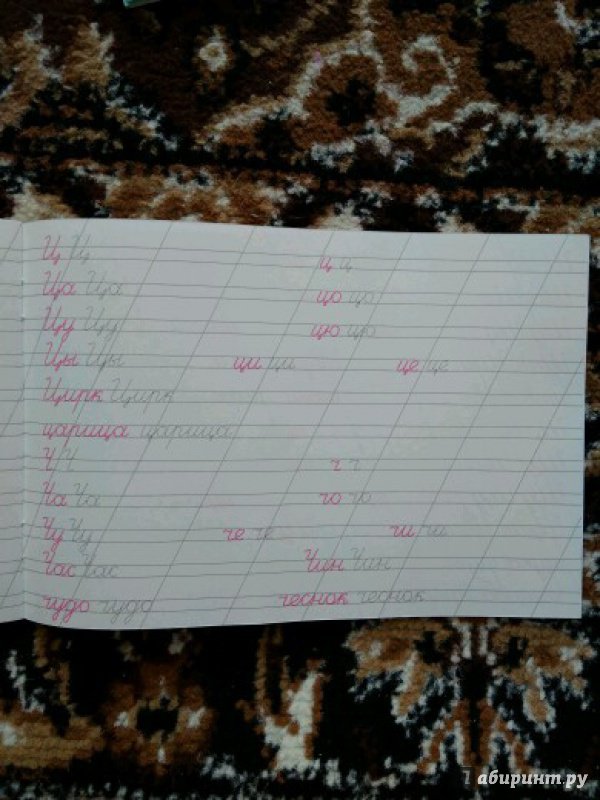 Ц Ц ц ц
Ца Ца цо цо
Цу Цу цю цю
Цы Цы ци ци це це
Цирк Цирк
царица царица
Ч Ч ч ч
Ча Ча чо чо
Чу Чу че че чи чи
Час Час Чин Чин
чудо чудо чеснок чеснок
Лабиринт.ру